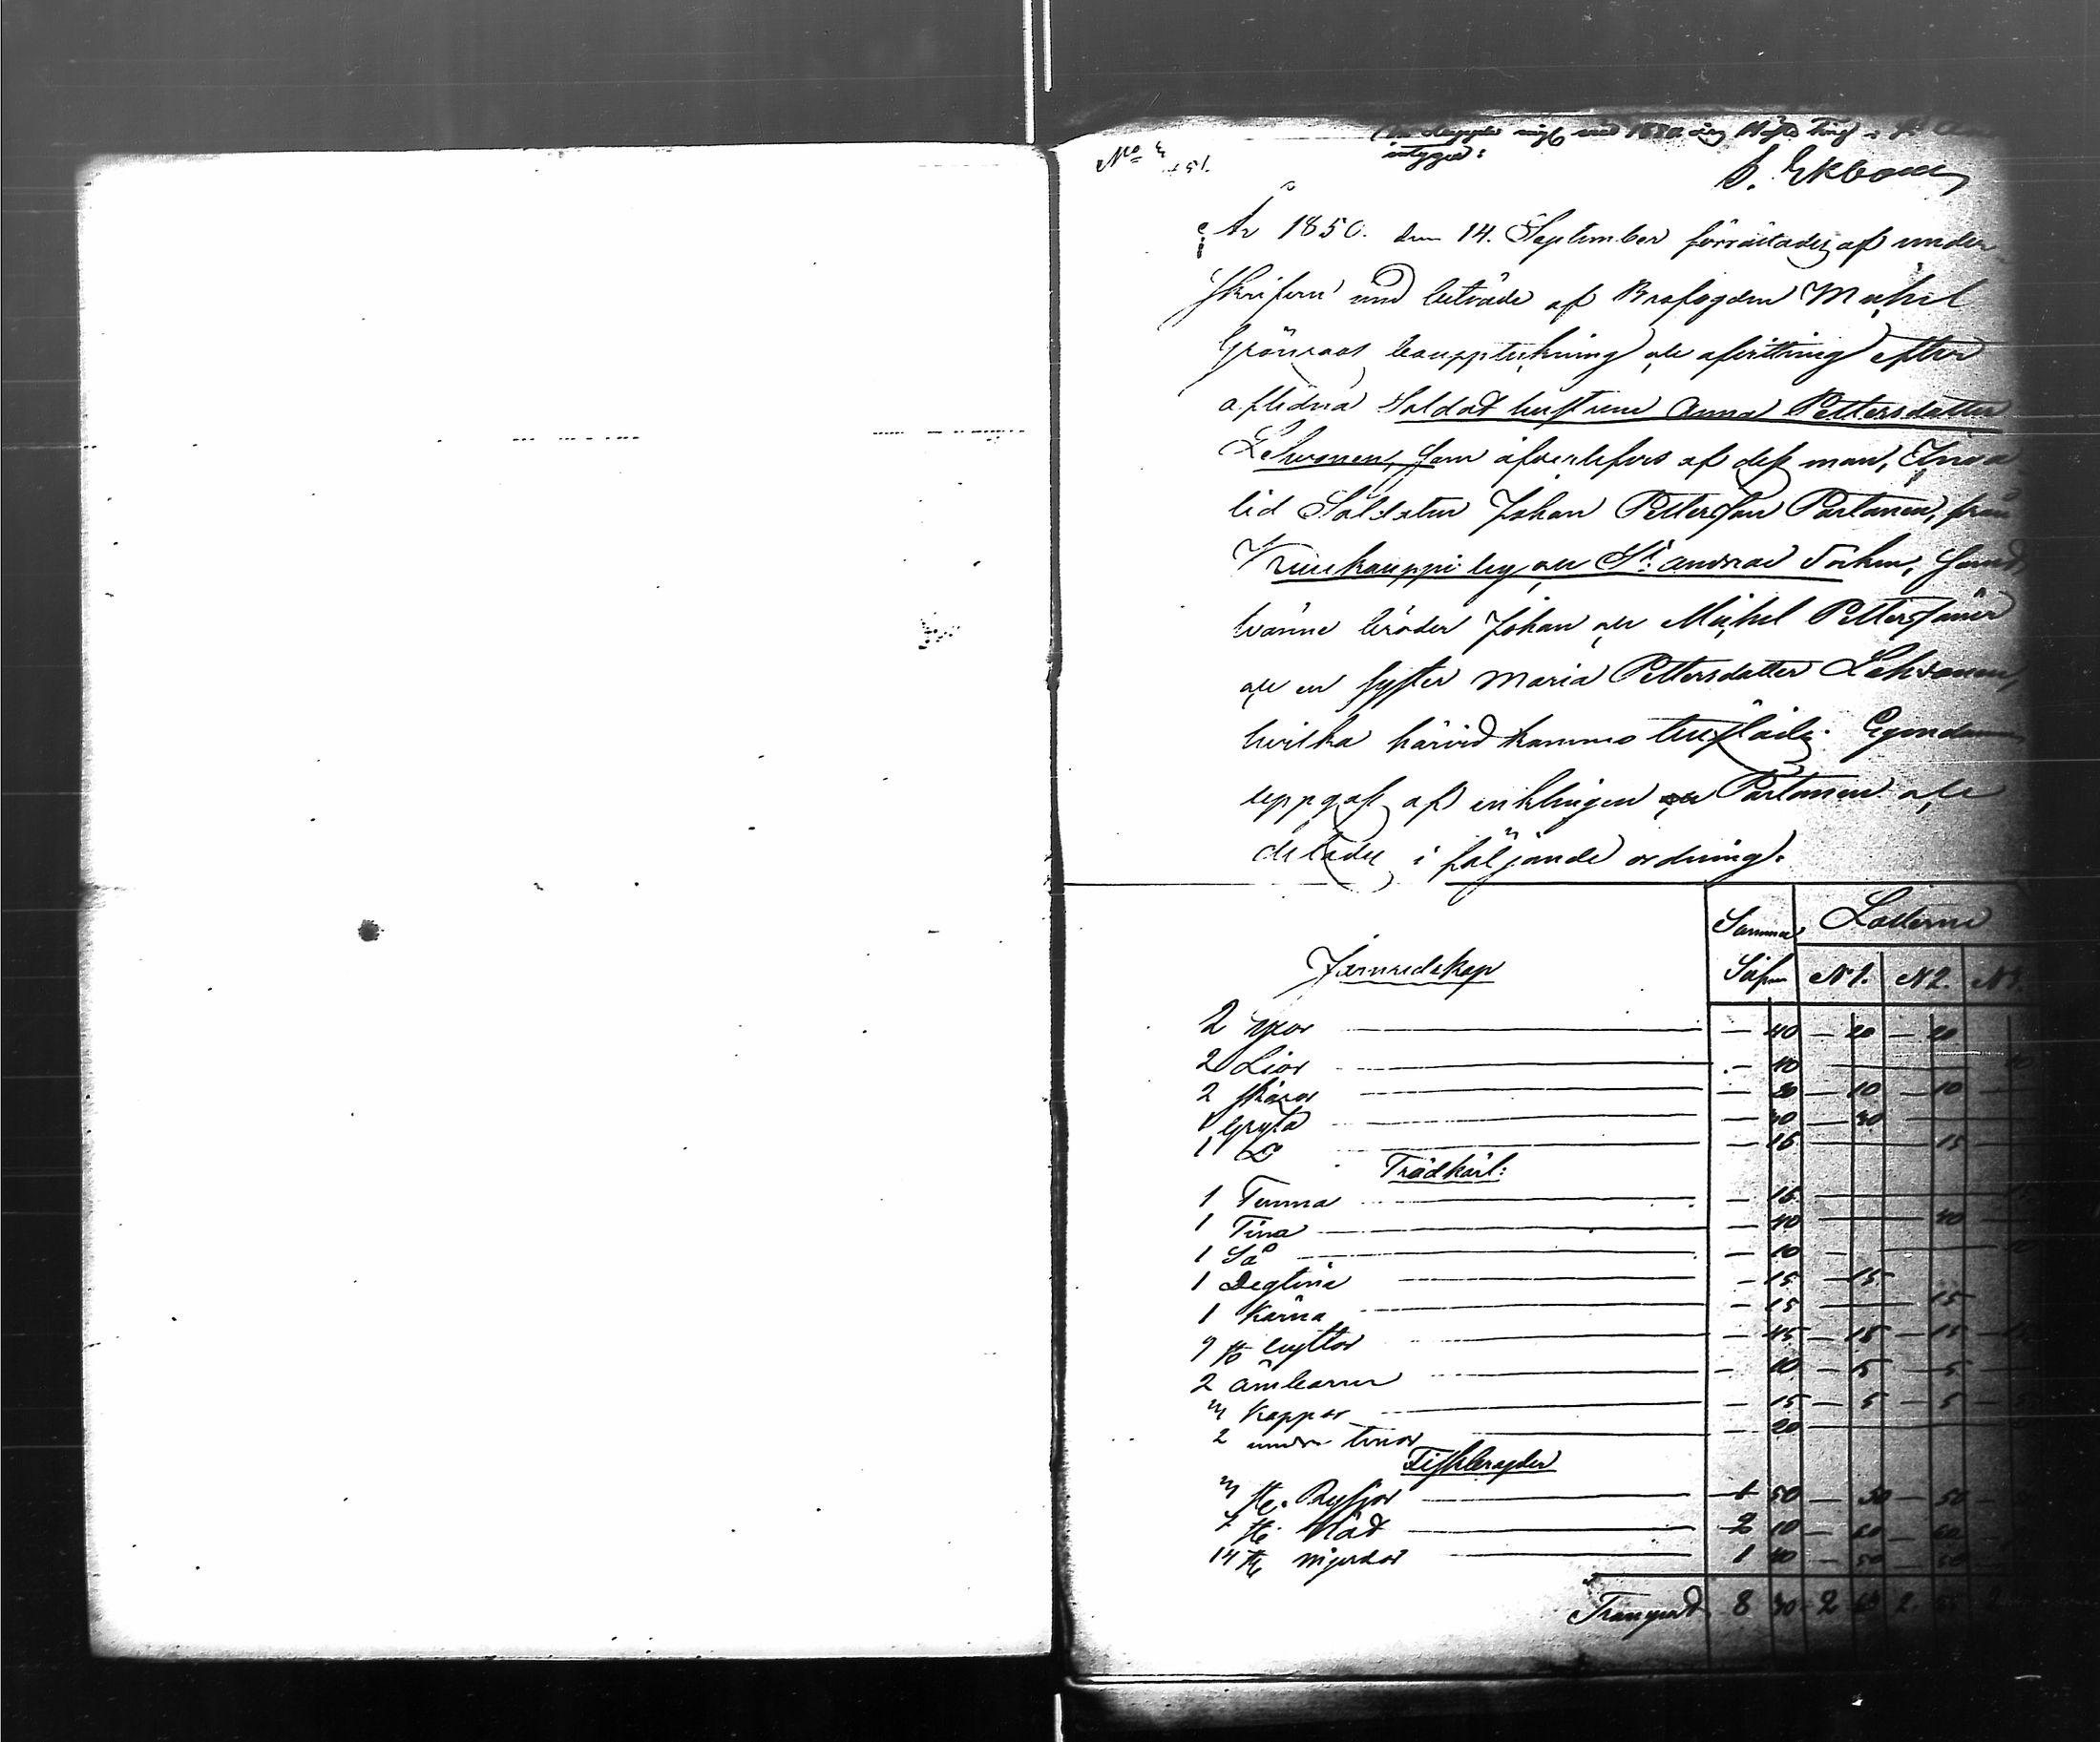 No 3
intygar:
S. Ekbom
År 1850. den 14. September förrättades af under
skrifven med biträde af Brofogden Michel
Grönroos bouppteckning och afvittring efter
aflidna Soldat hustrun Anna Pettersdotter
Lehvonen, som öfverlefves af dess man, Inva
lid Soldaten Johan Petterson Partanen, från
Kuukauppi by och St. Andreae Socken, samt
tvänne bröder Johan och Michel Petterssöner
och en syster Maria Pettersdotter Lehvonen,
hvilka härvid kommo tillstädes. Egendomen
uppgafs af enklingen Partanen och
delades i följande ordning.
Summa Lotterne
Jernredskap Silfver N 1. N 2. N 3.
2 Yxor — 40 — 20 — 20
2 Liar — 10
2 Skäror — 20 — 10 — 10 —
1 Gryta — 40 — 40
1 D:o — 15 15
Trädkärl:
1 Tunna — 15 15
1 Tina — 40 40
1 Så — 10 10
1 Degtina — 15 — 15
1 Kärna — 15 15
9 st. byttor — 45 — 15 — 15 — 15
2 Ämbaren — 10 — 5 — 5 —
3 Kappor — 15 — 5 — 5 — 5
2 tinor — 20
Fiskbragder
3 st. Rysjor 1 50 — 50 — 50
7 st. Nät 2 10 — 60 — 60
14 st. Mjerdor 1 40 — 50 — 50
Transport 8 40 2 60 2